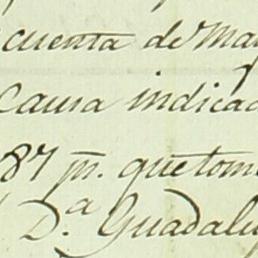 cuenta de Ma
causa indica
87 p.s que tom
D.a Guadalu